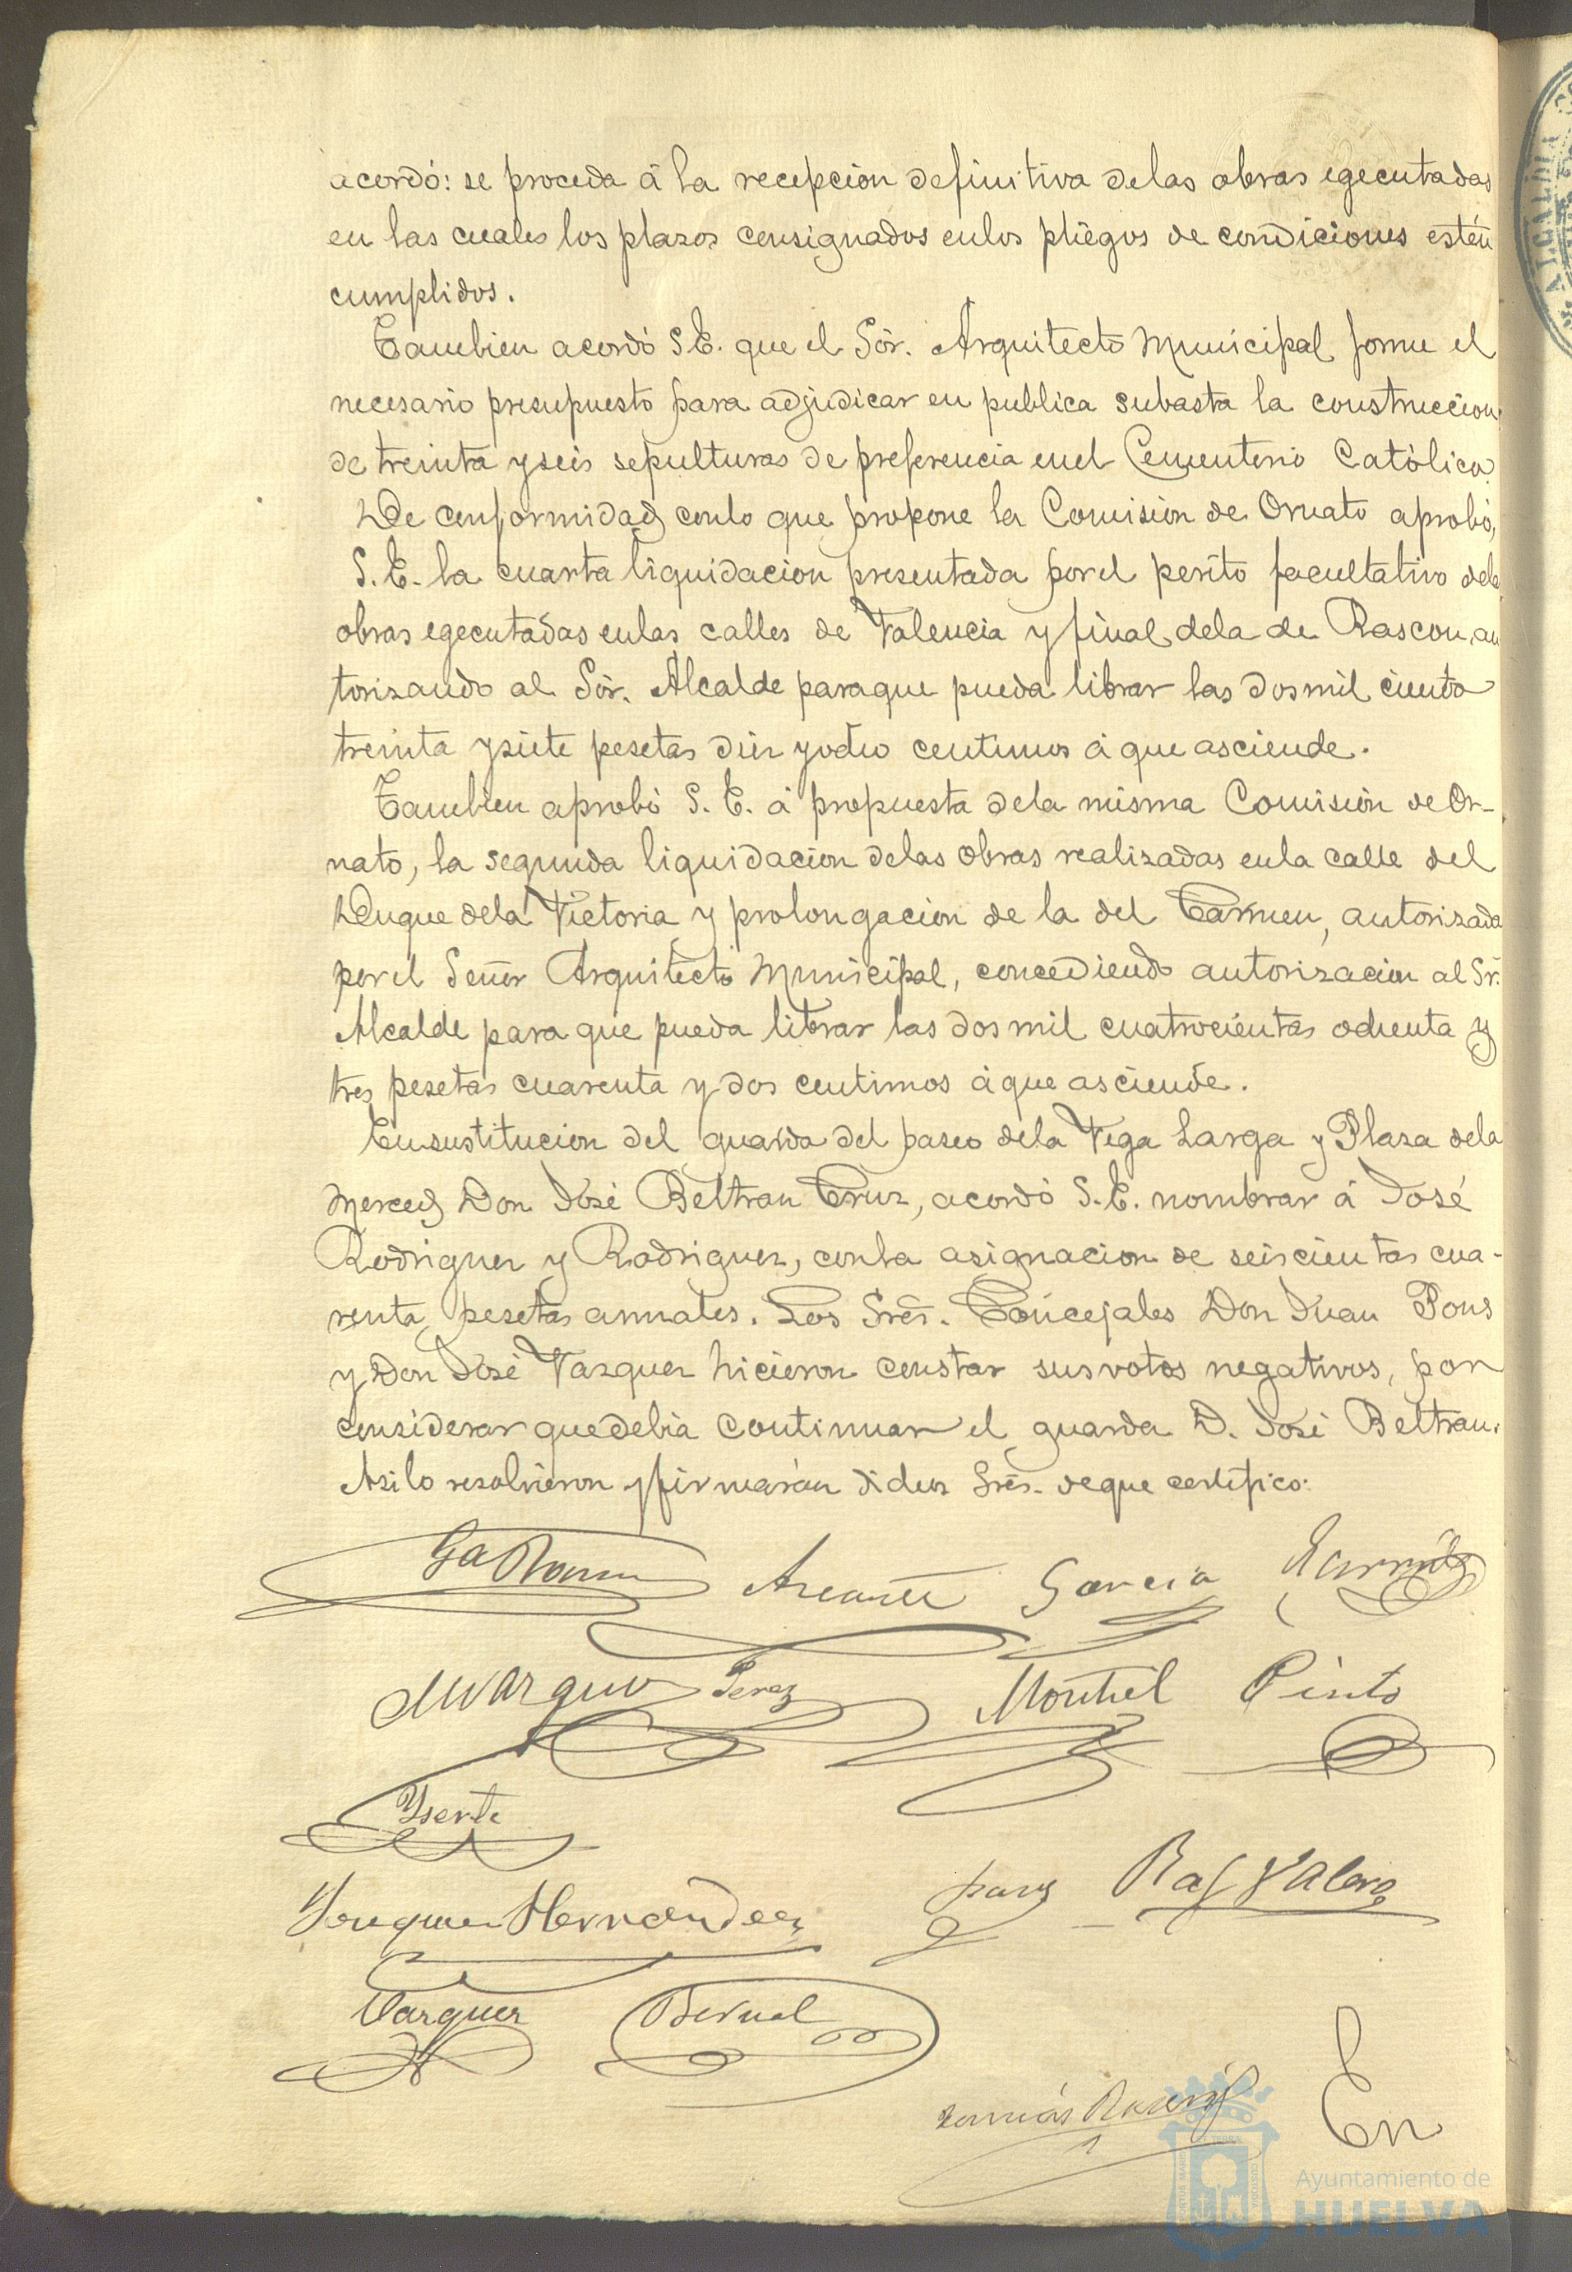 acordó: se proceda á la recepcion definitiva delas obras egecutadas
en las cuales los plazos consignados enlos pliegos de condiciones estén
cumplidos.
Tambien acordó S.E. que el Sór. Arquitecto Municipal forme el
necesario presupuesto para adjudicar en publica subasta la construccion
de treinta y seis sepulturas de preferencia enel Cementerio Católico.
De conformidad conlo que propone la Comisión de Ornato aprobó,
S.E. la cuarta liquidacion presentada porel perito facultativo dela
obras egecutadas enlas calles de Valencia y final dela de Rascon, au
torizando al Sór. Alcalde paraque pueda librar las dosmil ciento
treinta y siete pesetas diez yocho centimos á que asciende.
Tambien aprobó S.E. á propuesta dela misma Comisión de Or-
nato, la segunda liquidacion delas obras realizadas enla calle del
Duque dela Victoria y prolongacion de la del Carmen, autorizada
porel Señor Arquitecto Municipal, concediendo autorizacion al Sr.
Alcalde para que pueda librar las dos mil cuatrocientas ochenta y
tres pesetas cuarenta y dos centimos á que asciende.
En sustitucion del guarda del paseo dela Vega Larga y Plaza dela
Merced Don José Beltran Cruz, acordó S.E. nombrar á José
Rodriguez y Rodriguez, conla asignacion de seiscientas cua-
renta pesetas anuales. Los Sres. Concejales Don Juan Pons
y Don José Vazquez hicieron constar susvotos negativos, por
considerar quedebia continuar el guarda D. José Beltran.
Asi lo resolvieron y firmarán dichos Sres. deque certifico:
García
Perez
Montiel Pinto
Yserte
Hernandez
Raf Valera
Vazquez Bernal
Tomás
En
Ayuntamiento de
HUELVA
ALCALDIA